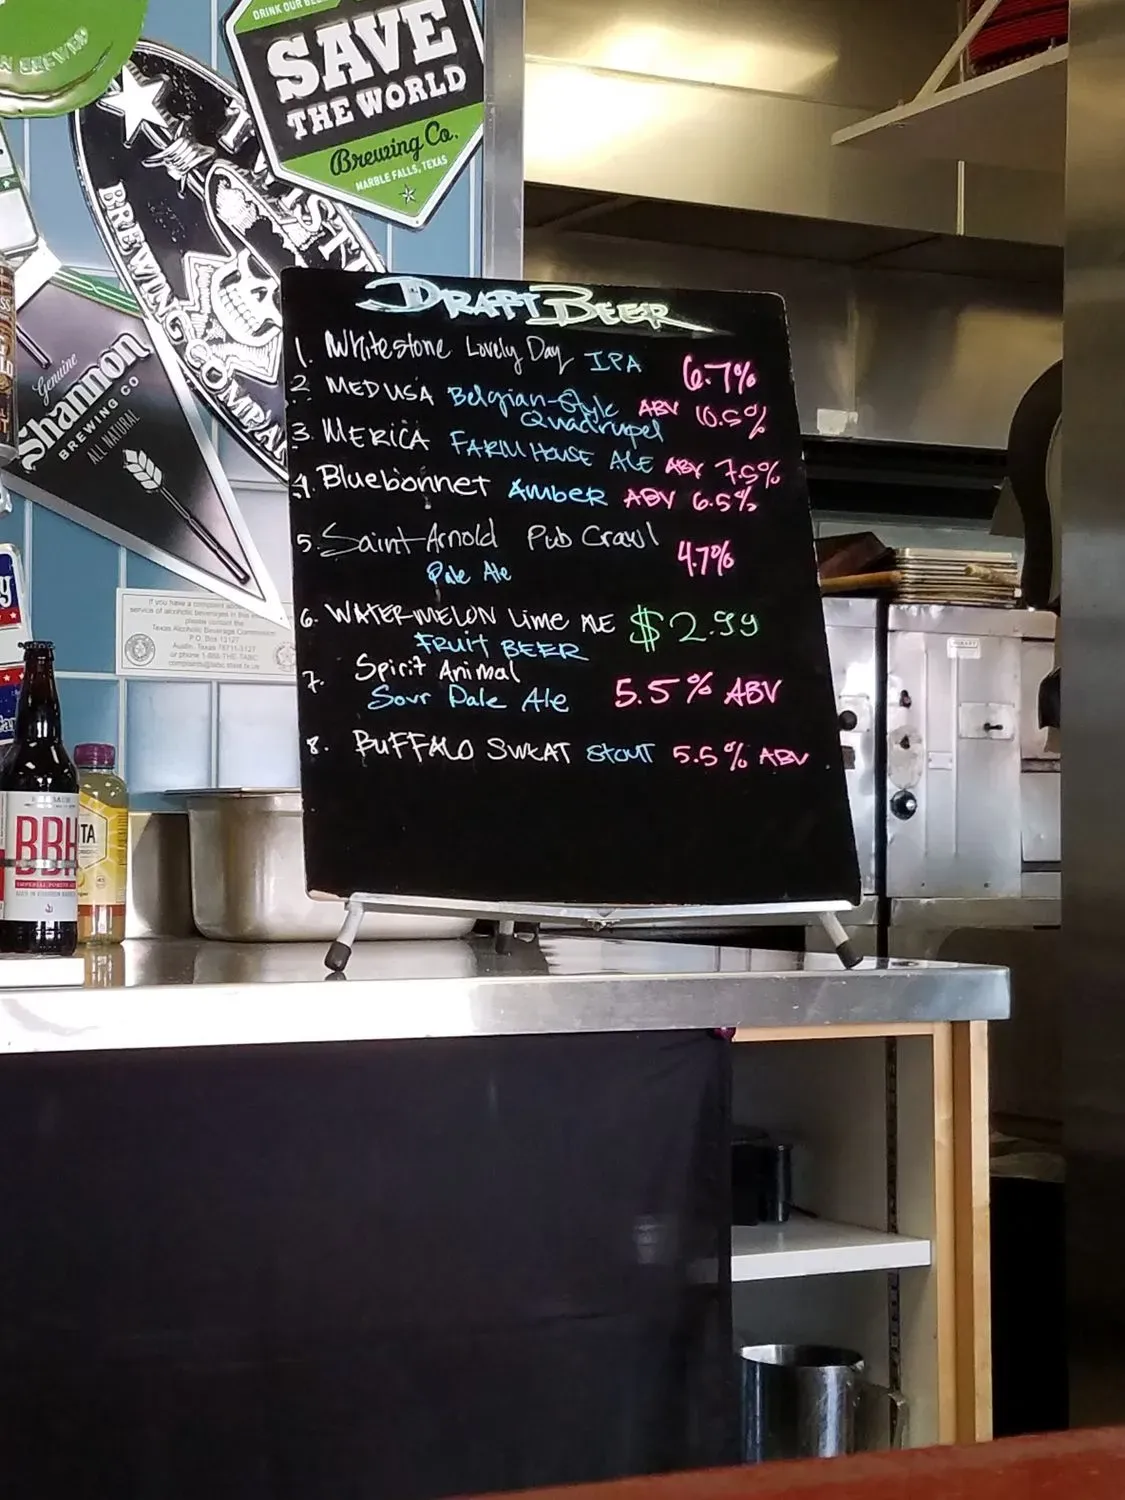 DRINK OUR BEER
SAVE
THE WORLD
Brewing Co.
MARBLE FALLS, TEXAS
BREWING COMPANY
Genuine
Shannon
BREWING CO
ALL NATURAL
DRAFT BEER
1. Whitestone Lovely Day IPA 6.7%
2 MEDUSA Belgian-Style ABV 10.5%
Quadrupel
3. MERICA FARMHOUSE ALE ABV 7.5%
4. Bluebonnet AMBER ABV 6.5%
5. Saint Arnold Pub Crawl 4.7%
Pale Ale
6. WATERMELON Lime ALE $2.99
FRUIT BEER
7. Spirit Animal
Sour Pale Ale 5.5% ABV
8. BUFFALO SWEAT Stout 5.5% ABV
If you have a complaint
service of alcoholic beverages in this
please contact the
Texas Alcoholic Beverage Commission
P.O. Box 13127
Austin, Texas 78711-3127
or phone 1-888-THE-TABC
BBH
IMPERIAL PORTER
TA